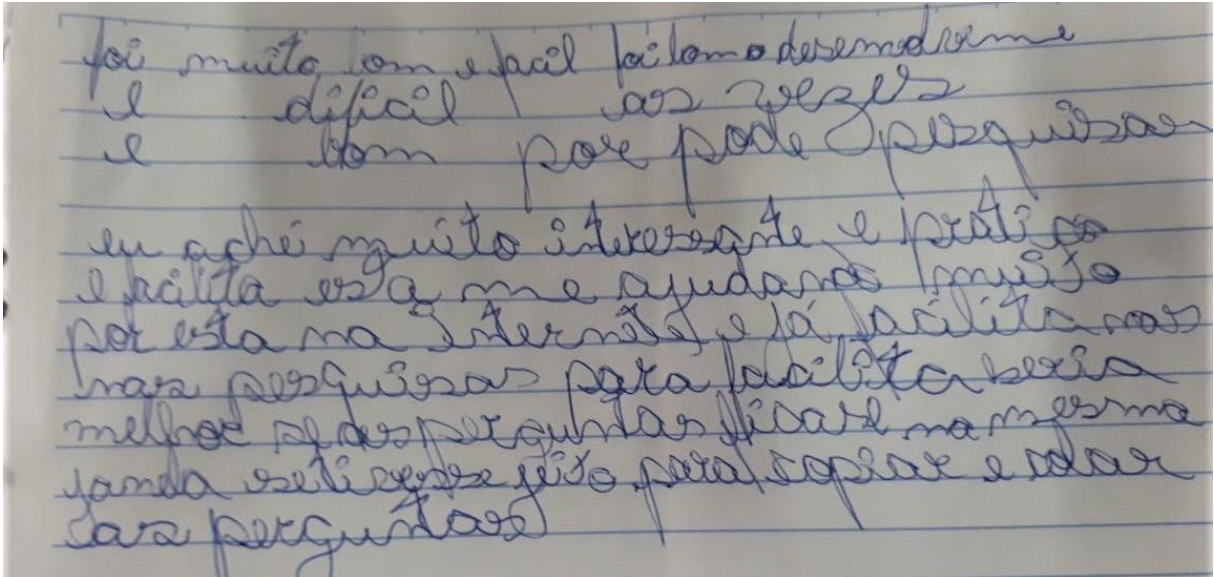 foi muito bom e facil foi como desemedrome
e dificil as vezes
e bom por pode pesquisar
eu achei muito interessante e pratico
e facilita esá me ajudando muito
por esta na internete e já facilita mas
nas pesquisas para facilita seria
melhor se as perguntas ficase na mesma
janela se tivesse jeito para copiar e colar
as perguntas